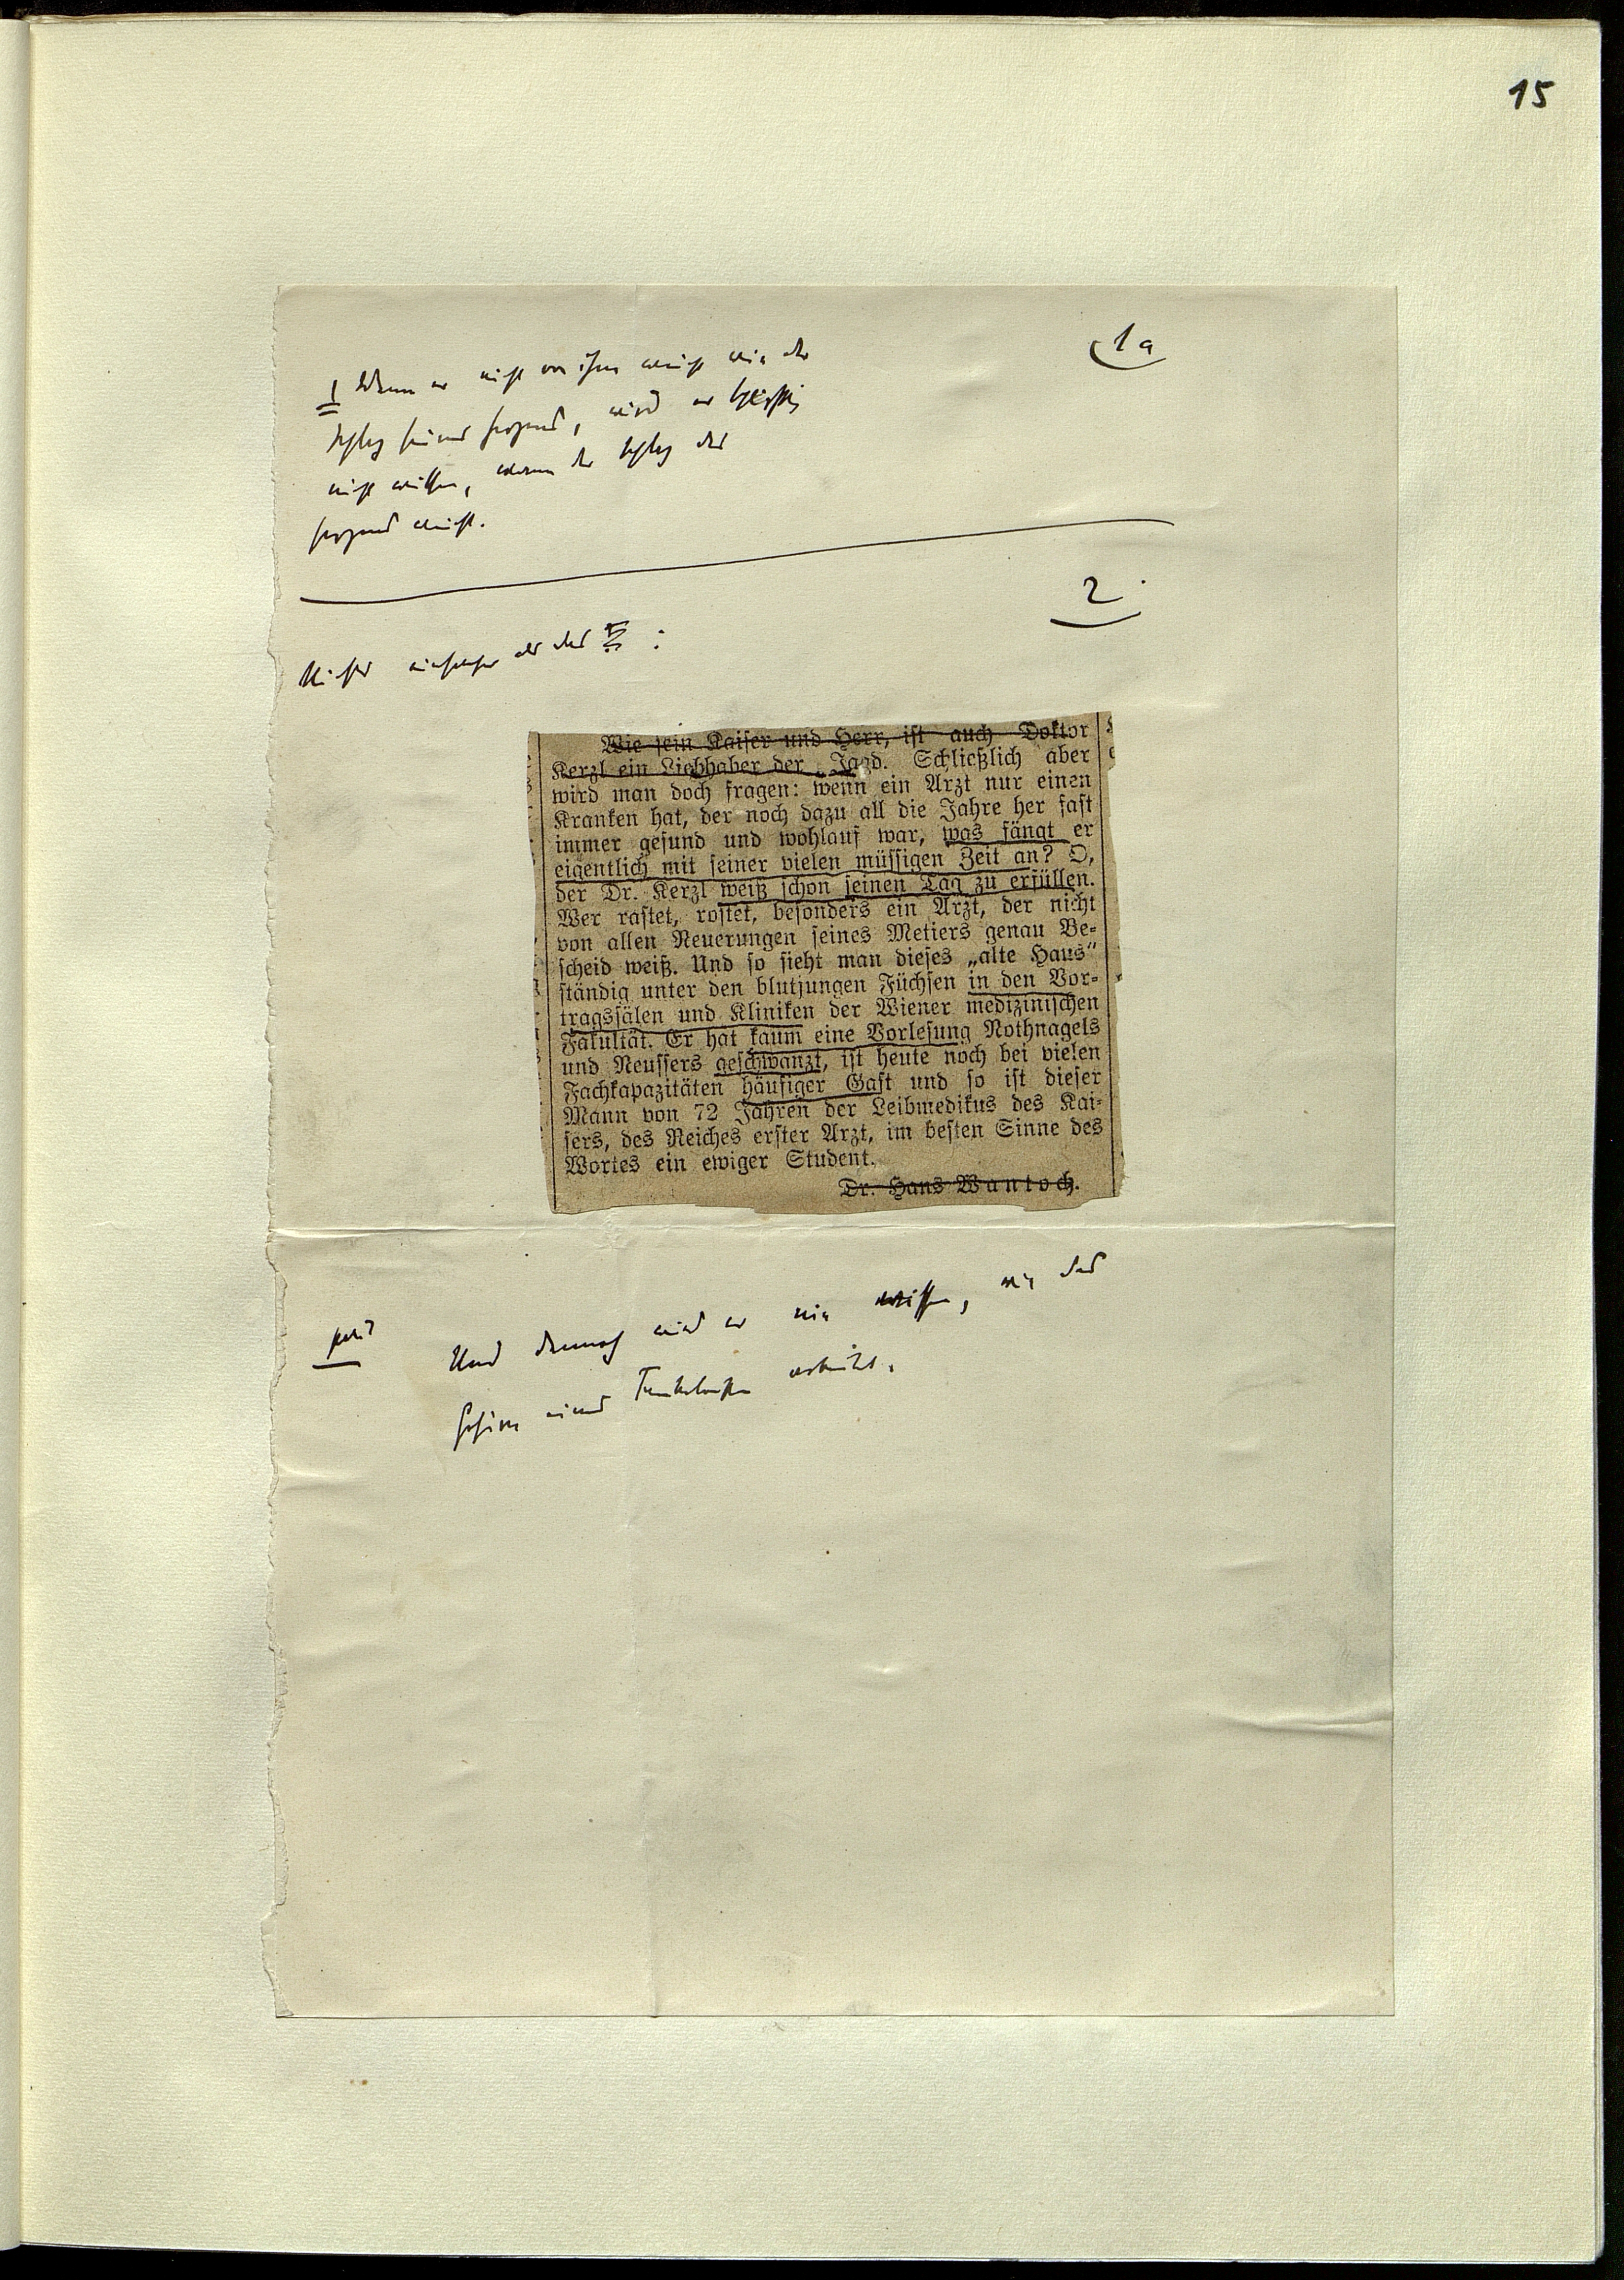 15
1a
nicht
wird er
nicht wissen, der
2.
Nichts einfacher als das
Wie sein Kaiser und Herr, ist auch Doktor
Kerzl ein Liebhaber der Jagd. Schließlich aber
wird man doch fragen: wenn ein Arzt nur einen
Kranken hat, der noch dazu all die Jahre her fast
immer gesund und wohlauf war, was fängt er
eigentlich mit seiner vielen müssigen Zeit an? O,
der Dr. Kerzl weiß schon seinen Tag zu erfüllen.
Wer rastet, rostet, besonders ein Arzt, der nicht
von allen Neuerungen seines Metiers genau Be-
scheid weiß. Und so sieht man dieses „alte Haus“
ständig unter den blutjungen Füchsen in den Vor-
tragssälen und Kliniken der Wiener medizinischen
Fakultät. Er hat kaum eine Vorlesung Nothnagels
und Neussers geschwänzt, ist heute noch bei vielen
Fachkapazitäten häufiger Gast und so ist dieser
Mann von 72 Jahren der Leibmedikus des Kai-
sers, des Reiches erster Arzt, im besten Sinne des
Wortes ein ewiger Student.
Dr. Hans Wantoch.
Und dennoch wird er nie wissen, wie das
Gehirn eines arbeitet.